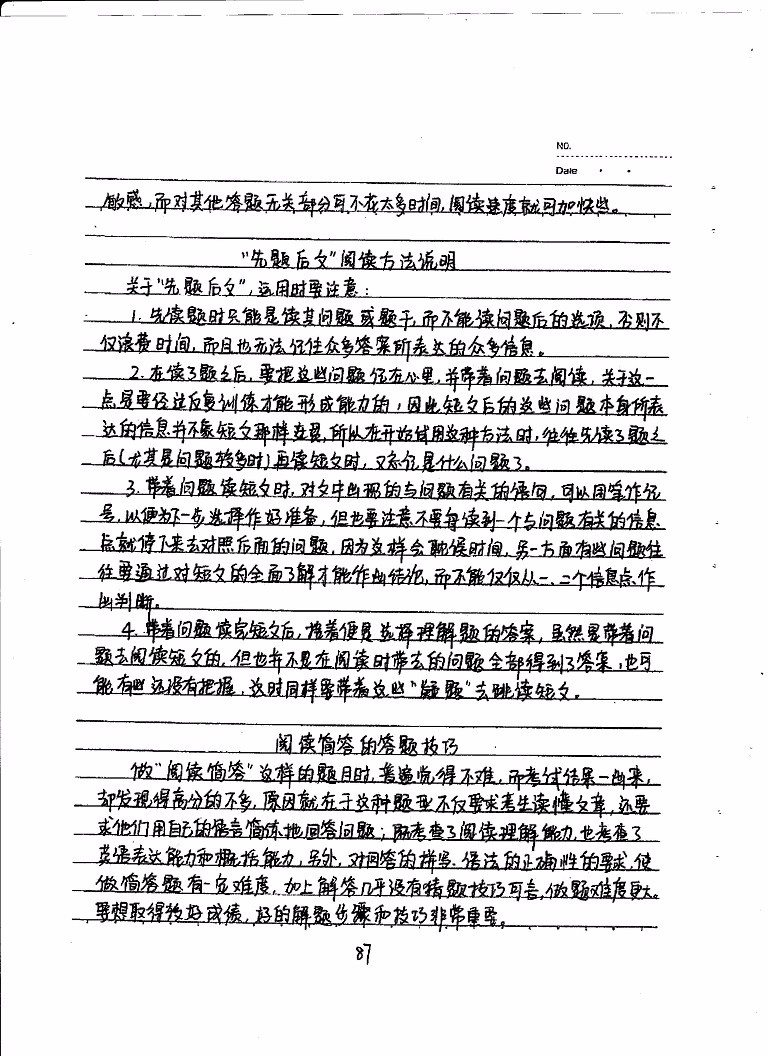 NO.
Date
敏感,而对其他答题无关部分可不花太多时间,阅读速度就可加快些。
“先题后文”阅读方法说明
关于“先题后文”,运用时要注意:
1. 先读题时只能是读其问题或题干,而不能读问题后的选项,否则不
仅浪费时间,而且也无法记住众多答案所表达的众多信息。
2. 在读了题之后,要把这些问题记在心里,并带着问题去阅读,关于这一
点是要经过反复训练才能形成能力的,因此短文后的这些问题本身所表
达的信息并不象短文那样连贯,所以在开始试用这种方法时,往往先读了题之
后(尤其是问题较多时)再读短文时,又忘记是什么问题了。
3. 带着问题读短文时,对文中出现的与问题有关的语句,可以用笔作记
号,以便为下一步选择作好准备,但也要注意不要每读到一个与问题有关的信息
点就停下来去对照后面的问题,因为这样会耽误时间,另一方面有些问题往
往要通过对短文的全面了解才能作出结论,而不能仅仅从一、二个信息点作
出判断。
4. 带着问题读完短文后,接着便是选择理解题的答案,虽然是带着问
题去阅读短文的,但也并不是在阅读时带去的问题全部得到了答案,也可
能有些还没有把握,这时同样要带着这些“疑题”去跳读短文。
阅读简答的答题技巧
做“阅读简答”这样的题目时,普遍觉得不难,而考试结果一出来,
却发现得高分的不多,原因就在于这种题型不仅要求考生读懂文章,还要
求他们用自己的语言简体地回答问题;既考查了阅读理解能力,也考查了
英语表达能力和概括能力,另外,对回答的拼写、语法的正确性的要求,使
做简答题有一定难度,加上解答几乎没有猜题技巧可言,做题难度更大。
要想取得较好成绩,好的解题步骤和技巧非常重要。
87